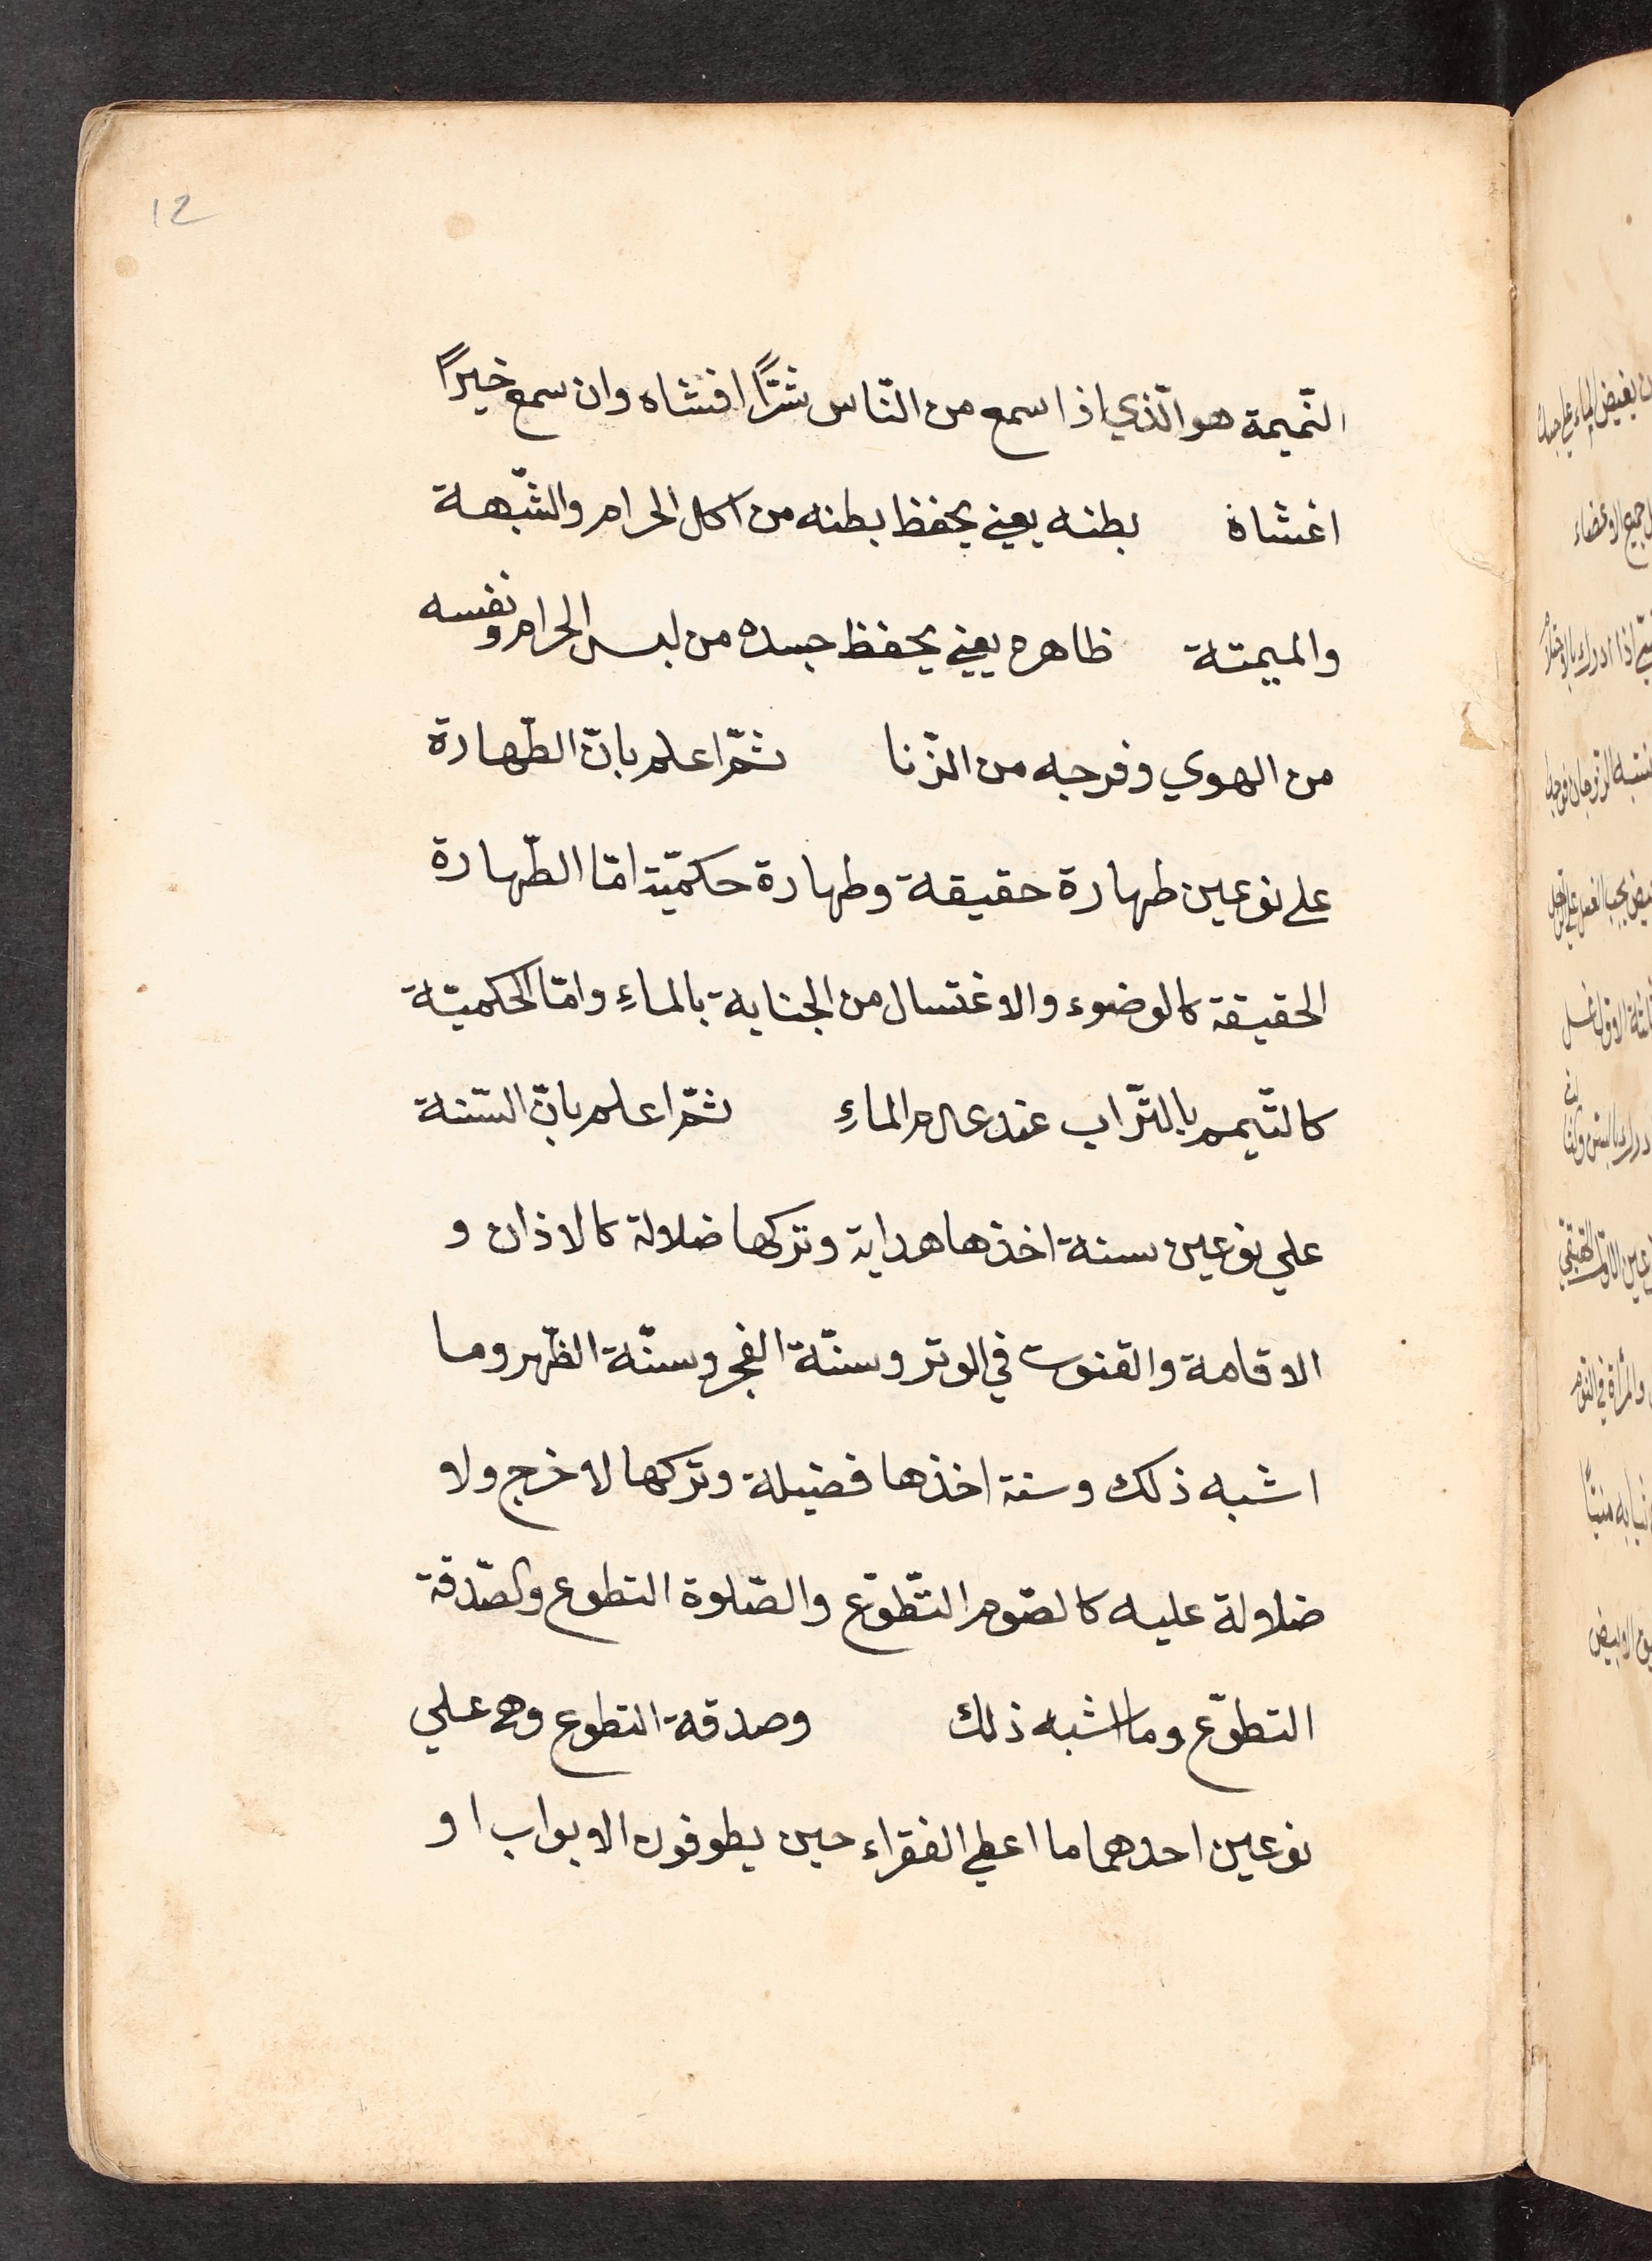 12
النّميمة هو الّذي اذا سمع من النّاس شرًّا افشاه وان سمع خيرًا
اغشاة بطنه يعني يحفظ بطنه من اكل الحرام والشّبهة
والميمتة ظاهره يعني يحفظ جسده من لبس الحرام ونفسه
من الهوي وفرجه من الزّنا ثمّ اعلم بانّ الطّهارة
علي نوعين طهارة حقيقة وطهارة حكميّة امّا الطّهارة
الحقيقة كالوضوء والاغتسال من الجنابة بالماءِ وامّا الحكميّة
كالتّيمم بالتّراب عند عدم الماءِ ثمّ اعلم بانّ السّنة
علي نوعين سنة اخذها هداية وتركها ضلالة كالاذان و
الاقامة والقنوت في الوتر وسنّة الفجر وسنّة الظّهر وما
اشبه ذلك وسنة اخذها فضيلة وتركها لا خرج ولا
ضلالة عليه كالصّوم التّطوّع والصّلوة التطوع والصّدقة
التطوّع وما اشبه ذلك وصدقة التطوع وهي علي
نوعين احدهما ما اعطي الفقراء حين يطوفون الابواب او